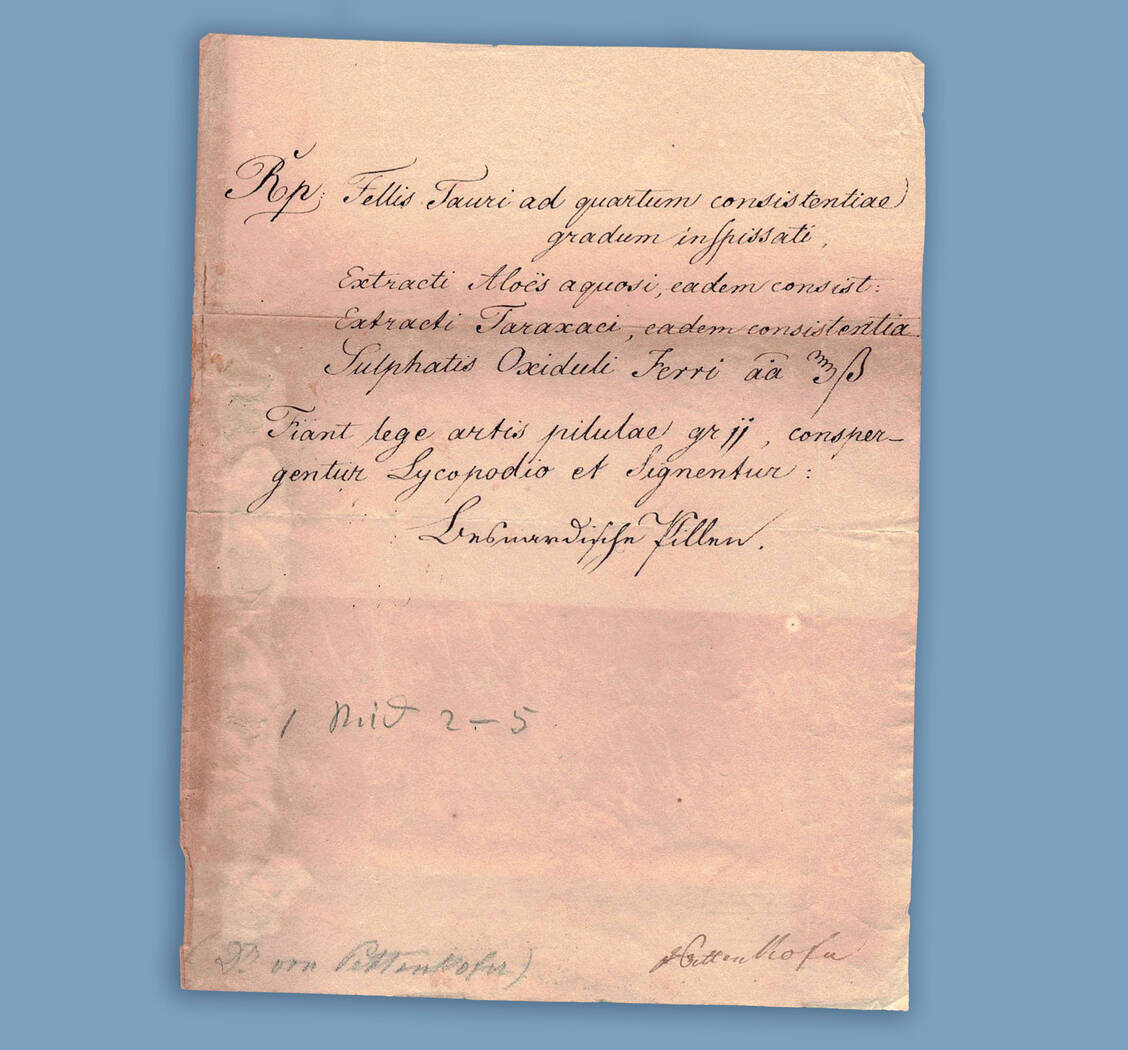 Rp: Fellis Tauri ad quartum consistentiae
gradum inspissati,
Extracti Aloës aquosi, eadem consist:
Extracti Taraxaci, eadem consistentia
Sulphatis Oxiduli Ferri āā ʒß
Fiant lege artis pilulae gr jj, consper-
gentur Lycopodio et Signentur:
Besnardische Pillen.
2 – 5
(Dr von Pettenkofer)
Pettenkofer